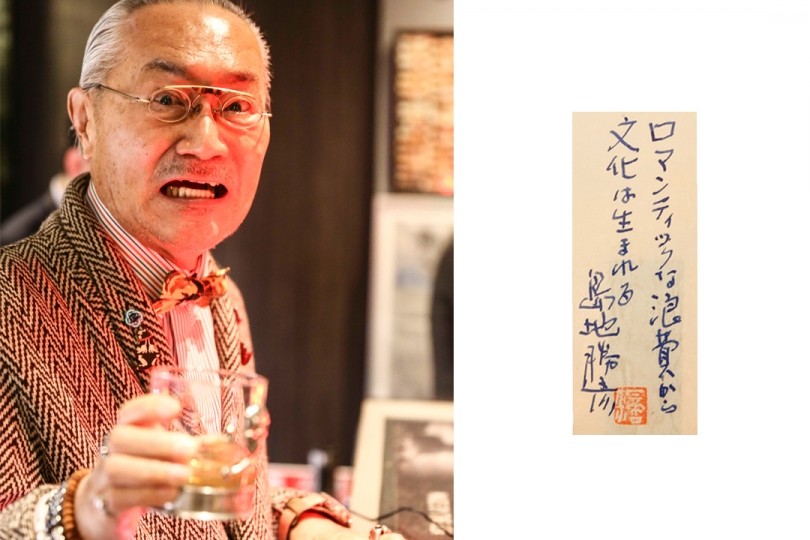 ロマンティックな浪費から
文化は生まれる
島地勝彦